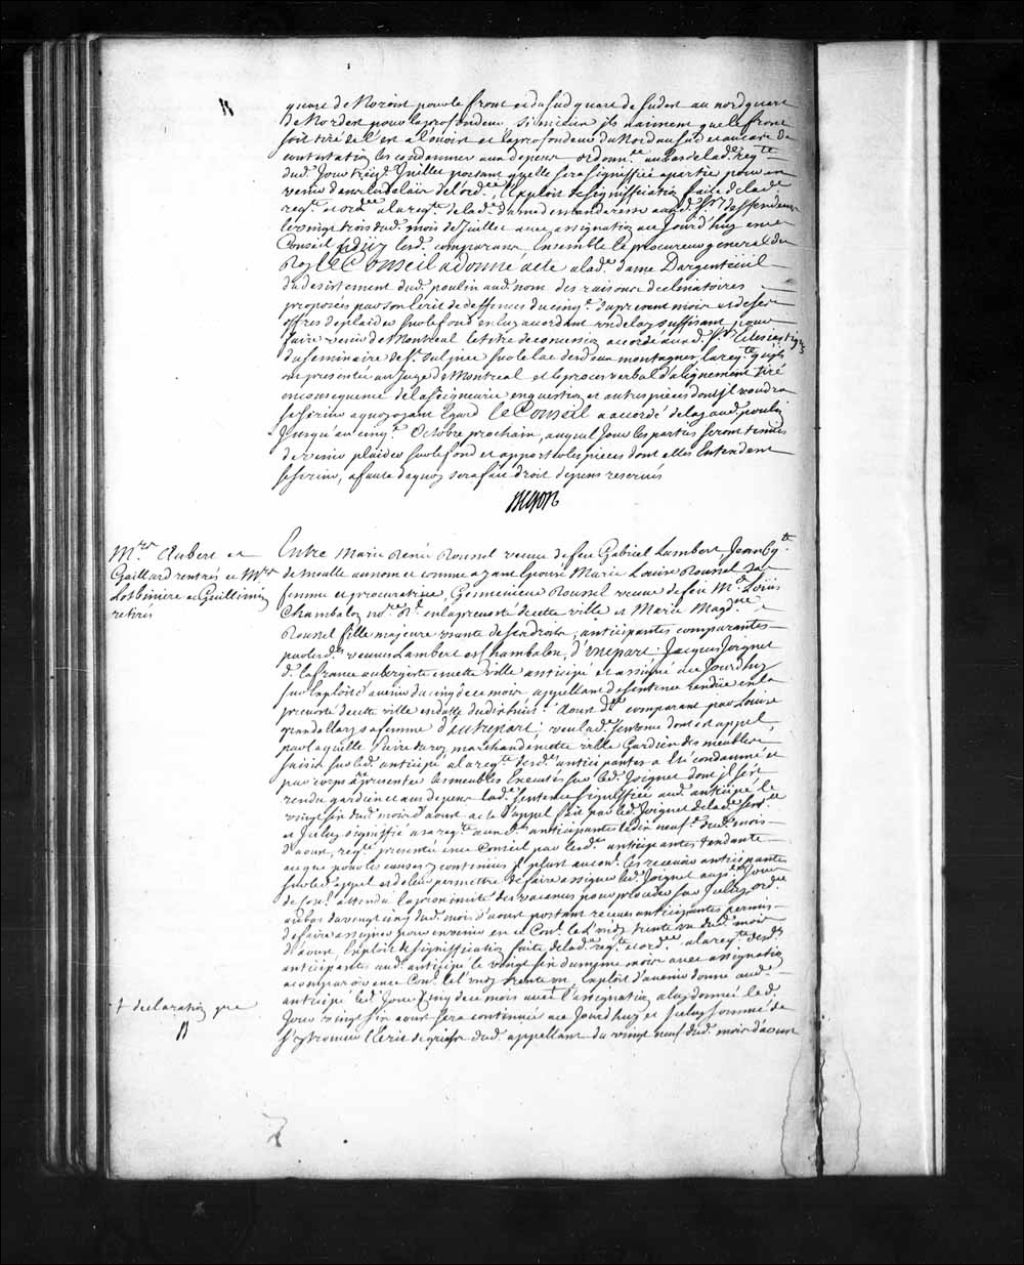 quart de Noroist pour le front et du Sud quart de Sudest au nord quart
de Nordest pour la profondeur si mieux ils n'aiment que le front
soit tiré de l'est a l'ouest et la profondeur du Nord au Sud et au cas de
contestation les condamner aux depens ordonn.ce au bas de lad.e req.te
dud. Jour treize Juillet portant qu'elle sera signiffiée a partie pour en
venir dans les delais de l'ord.ce, l'Exploit de signiffication faite de lad.e
req.te et ord.ce a la req.te de lad.e dame demanderesse aud. S.r deffendeur
le vingt trois dud. mois de Juillet avec assignation au Jourd'huy en ce
Conseil, Oüy lesd. comparans, Ensemble le procureur general du
Roy Le Conseil a donné acte a lad.e dame Dargenteüil
du desistement dud. poulin aud. nom des raisons declinatoires
proposées par son Ecrit de deffences du cinq.e du present mois et de ses
offres de plaider sur le fond en luy accordant un delay suffisant pour
faire venir de Montreal le titre de concession accordé aud. S.rs Eclesiastiques
du seminaire de S.t Sulpice sur le lac des deux montagnes, la req.te qu'ils
ont presentée au Juge de Montreal et le procez verbal d'alignement tiré
en consequence de la Seigneurie en question et autres pieces dont il voudra
se servir a quoy ayant Egard Le Conseil a accordé delay aud. poulin
Jusqu'au cinq.e Octobre prochain, auquel Jour les parties seront tenües
de venir plaider sur le fond et apporter les pieces dont elles Entendent
se servir, a faute de quoy sera fait droit depens reservés
Begon
M.rs Aubert et
Gaillard rentrés et M.rs
Lotbiniere et Guillimin
retirés
Entre Marie Renée Roussel veuve de feu Gabriel Lambert, Jean Bap.te
de meulle au nom et comme ayant Epousé Marie Louise Roussel sa
femme et procuratrice, Geneviéve Roussel veuve de feu M.e Loüis
Chambalon no.re R.l en la prevosté de cette ville et Marie Magd.ne
Roussel fille majeure usante de ses droits, anticipantes comparantes
par lesd. veuves Lambert et Chambalon, d'une part. Jacques Joignet
d.t la france aubergiste en cette ville anticipé et assigné au Jourd'huy
sur l'exploit d'avenir du cinq de ce mois appellant de sentence rendüe en la
prevosté de cette ville en datte du dix huit Aoust d.er comparant par Louise
grandallary sa femme d'autre part; veu lad.e sentence dont est appel,
par laquelle Pierre duroy marchand en cette ville Gardien des meubles
saisis sur led. anticipé a la req.te desd.es anticipantes a Eté condamné et
par corps a representer les meubles Executés sur led. Joignet dont il s'est
rendu gardien et aux depens lad.e sentence signiffiée aud. anticipé le
vingt six dud. mois d'aoust acte d'appel fait par led. Joignet de lad.e sent.ce
et Iceluy signiffié a sa req.te auxd.es anticipantes le dix neuf.e dud. mois
d'aoust, req.te presentée en ce Conseil par lesd.es anticipantes tendante
a ce que pour les causes y contenües il plust au con.l les recevoir anticipantes
sur led. appel et de leur permettre de faire assigner led. Joignet au p.er Jour
de Con.l attendu la proximité des vacances pour proceder sur Iceluy, ord.ce
au bas du vingt cinq dud. mois d'aoust portant recües anticipantes permis
de faire assigner pour en venir en ce Con.l le L'undy trente un dud. mois
d'aoust, Exploit de signiffication faite de lad.e req.te et ord.ce a la req.te desd.es
anticipantes aud. anticipé le vingt six du mesme mois avec assignation
a comparoir en ce Con.l led. l'undy trente un, Exploit d'avenir donné aud.
anticipé led. Jour Cinq de ce mois avec l'assignation a luy donnée led.
Jour vingt six aoust sera continuée au Jourd'huy et Iceluy sommé de
s'y trouver l'Ecrit de griefs dud. appellant du vingt neuf dud. mois d'aoust
+ declaration que